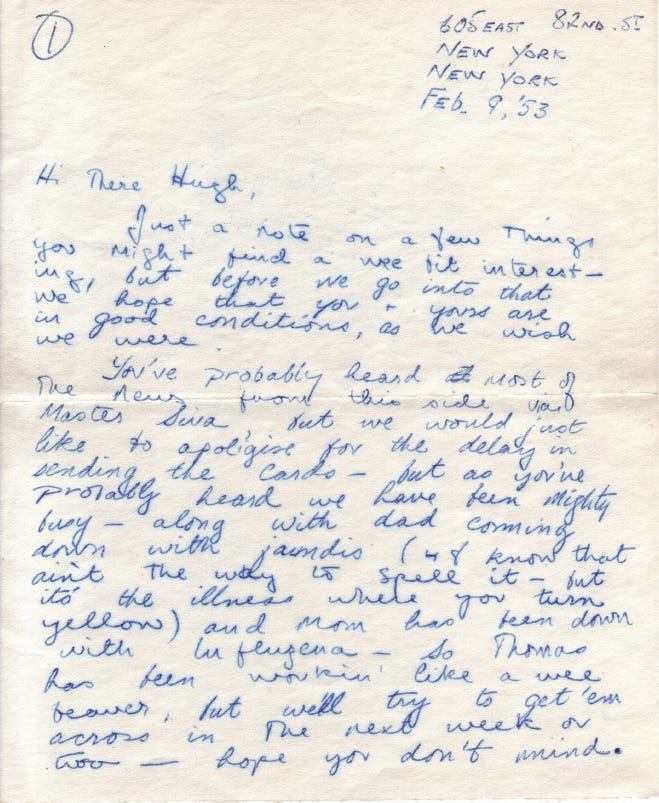 1
605 EAST 82ND. ST
NEW YORK
NEW YORK
FEB. 9, '53
Hi There Hugh,
Just a note on a few Things
you might find a wee bit interest-
ing, but before we go into that
we hope that you + yours are
in good conditions, as we wish
we were.
You've probably heard most of
The News from this side via
Master Siva, but we would just
like to apoligise for the delay in
sending the cards – but as you've
probably heard we have been mighty
busy – along with dad coming
down with jaundis ( I know that
ain't the way to spell it – but
it's the illness where you turn
yellow) and Mom has been down
with Influgena – So Thomas
has been workin' like a wee
beaver, but we'll try to get 'em
across in The next week or
two — hope you don't mind.